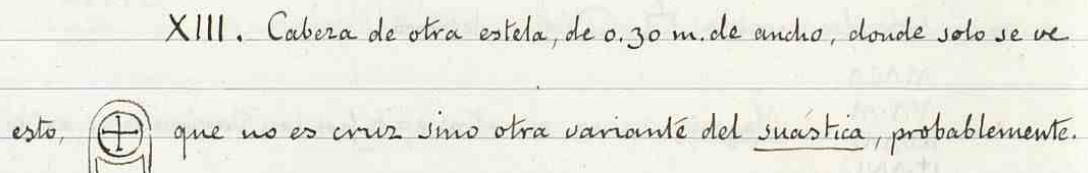 XIII. Cabeza de otra estela, de 0.30 m. de ancho, donde solo se ve
esto, que no es cruz sino otra variante del suástica, probablemente.